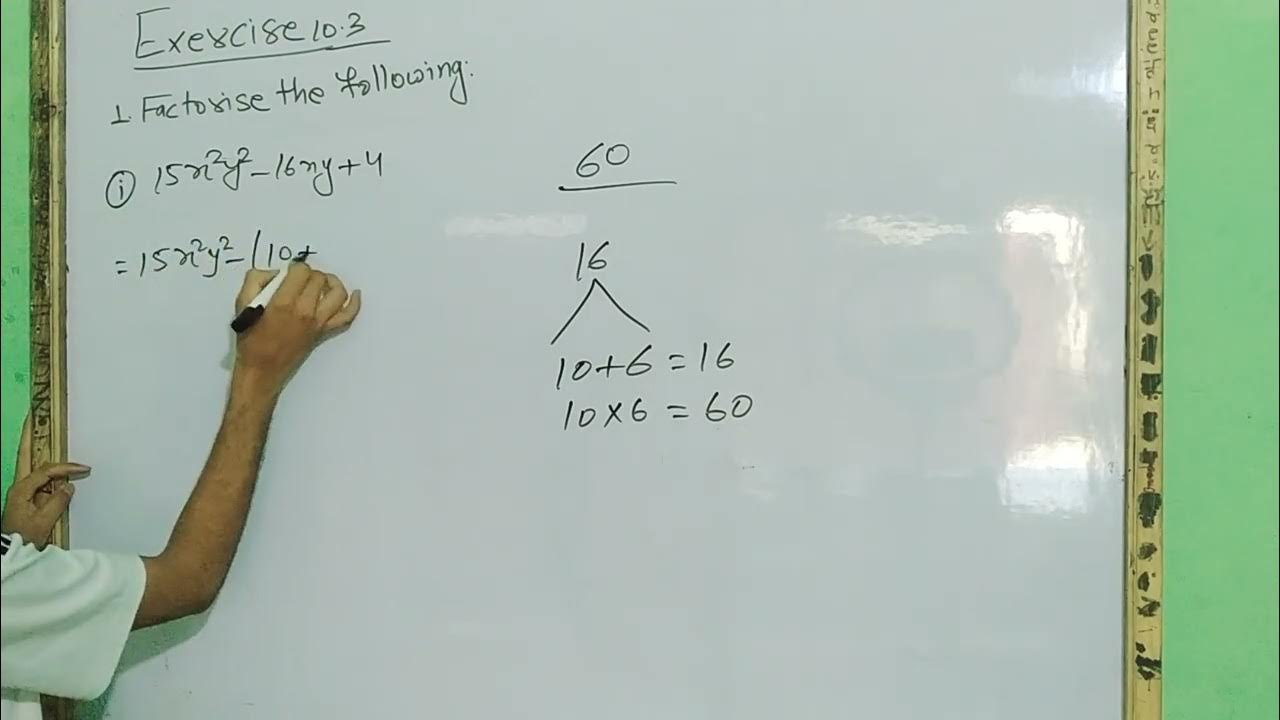 Exercise 10.3
1. Factorise the following:
(i) 15x²y² - 16xy + 4
= 15x²y² - (10+
60
16
10+6 = 16
10×6 = 60